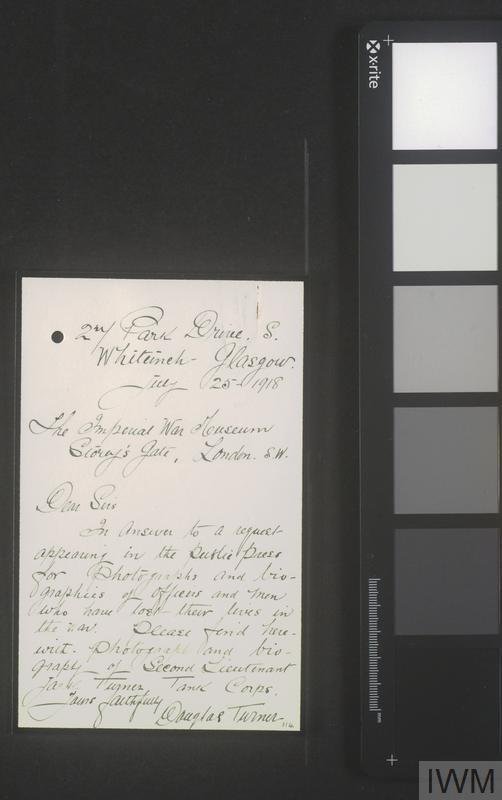 Park Drive. S.
Whiteinch - Glasgow.
July 25 - 1918
The Imperial War Museum
Storey's Gate, London. S.W.
Dear Sirs
In answer to a request
appearing in the Public Press
for Photographs and bio-
graphies of Officers and Men
who have lost their lives in
the war. Please find here-
with - photograph and bio-
graphy of Second Lieutenant
Jack Turner Tank Corps.
Yours faithfully
Douglas Turner
x-rite
mm
IWM